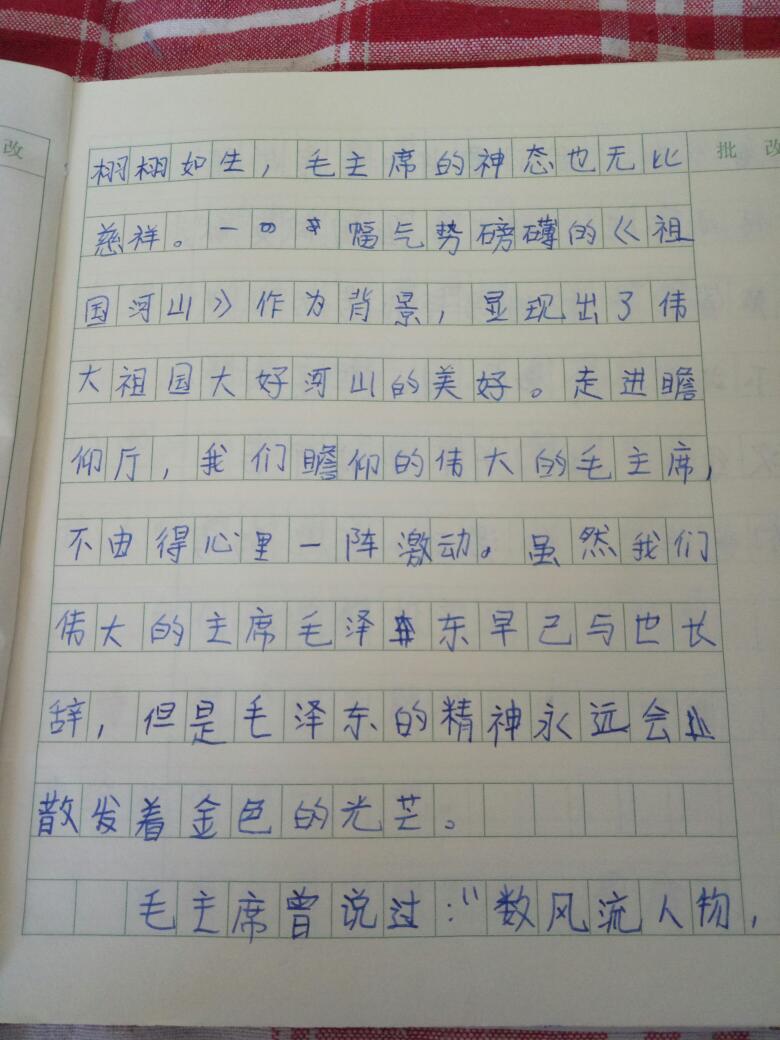 改
批 改
栩栩如生，毛主席的神态也无比
慈祥。一幅气势磅礴的《祖
国河山》作为背景，显现出了伟
大祖国大好河山的美好。走进瞻
仰厅，我们瞻仰的伟大的毛主席，
不由得心里一阵激动。虽然我们
伟大的主席毛泽东早已与世长
辞，但是毛泽东的精神永远会
散发着金色的光芒。
毛主席曾说过：“数风流人物，